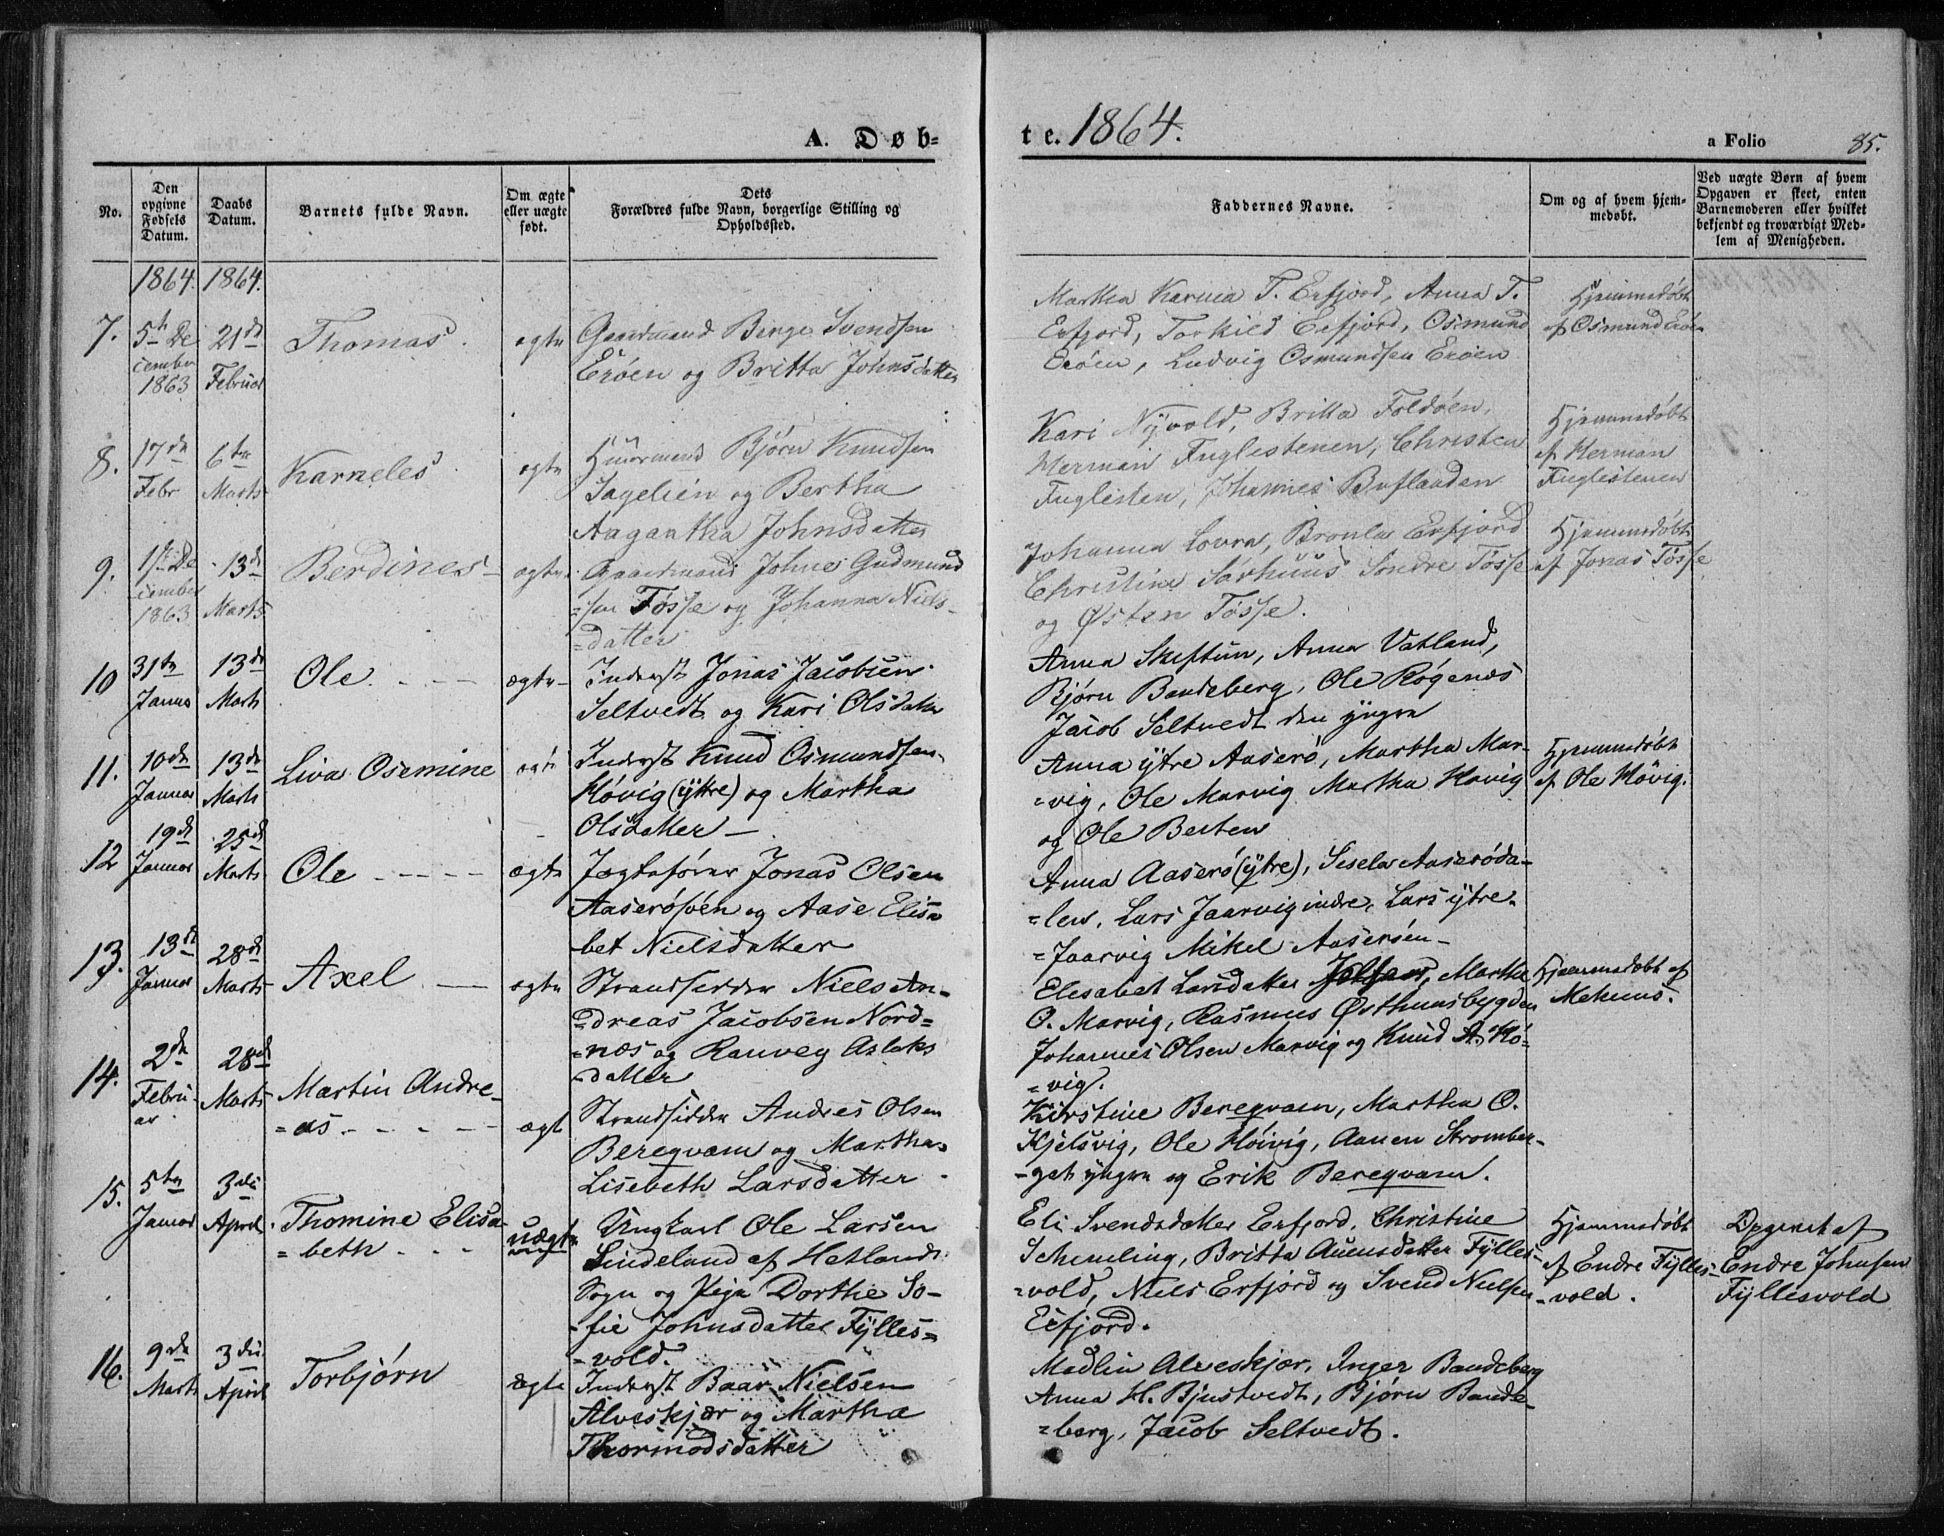 A. Døb-
te. 1864.
a Folio 85.
No.
Den opgivne Fødsels Datum.
Daabs Datum.
Barnets fulde Navn.
Om ægte eller uægte født.
Dets Forældres fulde Navn, borgerlige Stilling og Opholdssted.
Faddernes Navne.
Om og af hvem hjem-
medøbt.
Ved uægte Børn af hvem
Opgaven er skeet, enten
Barnemoderen eller hvilket
bekjendt og troværdigt Med-
lem af Menigheden.
1864. 1864.
7.
5te De
cember
1863
21de
Februar
Thomas
ægte
Gaardmand Børge Svendsen
Erøen og Britta Johnsdatter
Martha Karina T. Erfjord, Anna T.
Erfjord, Torkild Erfjord, Osmund
Erøen, Ludvig Osmundsen Erøen
Hjemmedøbt
af Osmund Erøen
8.
17de
Febr
6te
Marts
Karneles
ægte
Huusmand Bjørn Knudsen
Sagelien og Bertha
Aagantha Johnsdatter
Kari Nyvold, Britta Foldøen,
Herman Fuglestenen, Christen
Fuglesten, Johannes Buflaaden
Hjemmedøbt
af Herman
Fuglestenen
9.
1ste De
cember
1863
13de
Marts
Berdines
ægte
Gaardmand Johne Gudmund
=sen Tøsse og Johanna Niels-
=datter
Johanna Lovra, Bronla Erfjord
Christine Sørhuus Søndre Tøsse
og Østen Tøsse.
Hjemmedøbt
af Jonas Tøsse
10
31te
Januar
13de
Marts
Ole
ægte
Inderst Jonas Jacobsen
Seltvedt og Kari Olsdatter
Anna Skeftun, Anna Vatland,
Bjørn Bandeberg, Ole Røgenes
Jacob Seltvedt den yngre
11.
10de
Januar
13de
Marts
Liva Osemine
ægte
Inderst Knud Osmundsen
Høvig (ÿttre) og Martha
Olsdatter
Anna ÿtre Aaserø, Martha Mar-
=vig, Ole Marvig Martha Høvig
og Ole Besten
Hjemmedøbt
af Ole Høvig.
12
19de
Januar
25de
Marts
Ole
ægte
Jagtefører Jonas Olsen
Aaserøsøen og Aase Elisa
-bet Nielsdatter
Anna Aaserø (ÿtre), Sesela Aaserøda-
=len, Lars Jaarvig indre, Lars ÿtre
=Jaarvig Mikel Aaserøen
13.
13de
Januar
28de
Marts
Axel
ægte
Strandsidder Niels An-
=dreas Jacobsen Nord=
=næs og Ranveg Aslaks
=datter
Elesabet Larsdatter Martha
O. Marvig, Rasmus Østhuusbygden
Johannes Olsen Marvig og Knud A. Hø-
=vig.
Hjemmedøbt af
14.
2de
Febru-
ar
28de
Marts
Martin Andre-
=as
ægt
Strandsidder Andres Olsen
Bereqvam og Martha
Lisebeth Larsdatter
Kirstine Bereqvam, Martha O.
Kjelsvig, Ole Høivig, Aanen Stromber-
-get yngre og Erik Bereqvam.
15.
5te
Januar
3die
April
Thomine Elisa
=beth
uægte
Ungkarl Ole Larsen
Lindeland af Hetlands
Sogn og Pige Dorthe So-
-fie Johnsdatter Fylles=
-vold.
Eli Svendsdatter Erfjord, Christine
Schemling, Britta Auensdatter Fylles-
=vold, Niels Erfjord og Svend Nielsen
Erfjord.
Hjemmedøbt
af Endre Fylles
-vold.
Opgivet af
Endre Johnsen
Fyllesvold
16.
9de
Marts
3die
April
Torbjørn
ægte
Inderst Baar Nielsen
Alveskjær og Martha
Thormodsdatter
Madlin Alveskjær, Inger Bandeberg
Anna H. Bjustvedt, Bjørn Bande-
=berg, Jacob Seltvedt.